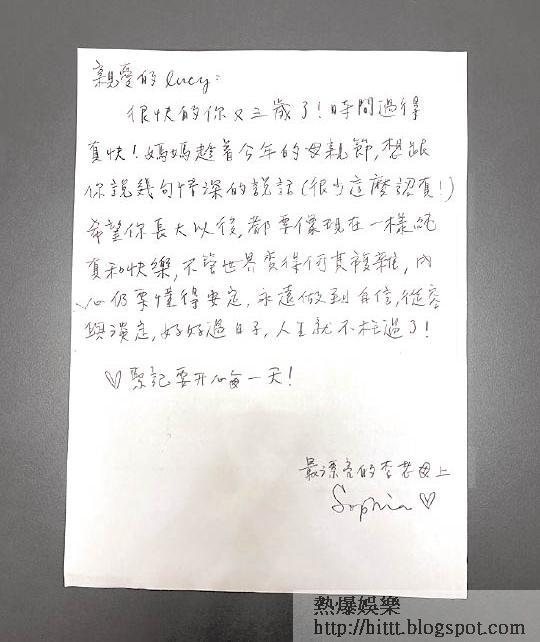 親愛的 Lucy:
很快的你又三歲了!時間過得
真快!媽媽趁著今年的母親節,想跟
你說幾句情深的說話(很少這麼認真!)
希望你長大以後,都要像現在一樣純
真和快樂,不管世界變得何其複雜,內
心仍要懂得安定,永遠做到自信,從容
與淡定,好好過日子,人生就不枉過了!
♡緊記要開心每一天!
最漂亮的李老母上
Sophia ♡
熱爆娛樂
http://hittt.blogspot.com